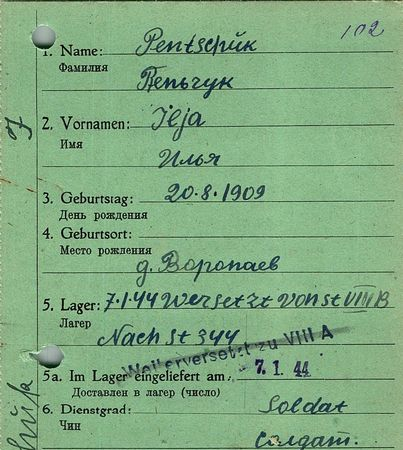 102
1. Name: Pentschuk
Фамилия
Пеньчук
2. Vornamen: Ilja
Имя
Илья
3. Geburtstag: 20.8.1909
День рождения
4. Geburtsort:
Место рождения
д. Воропаев
5. Lager: 7.1.44 Wersetzt von St VIII B
Лагер
Nach St 344
Weiterversetzt zu VIII A
5a. Im Lager eingeliefert am 7. 1. 44
Доставлен в лагер (число)
6. Dienstgrad: Soldat
Чин
Солдат.